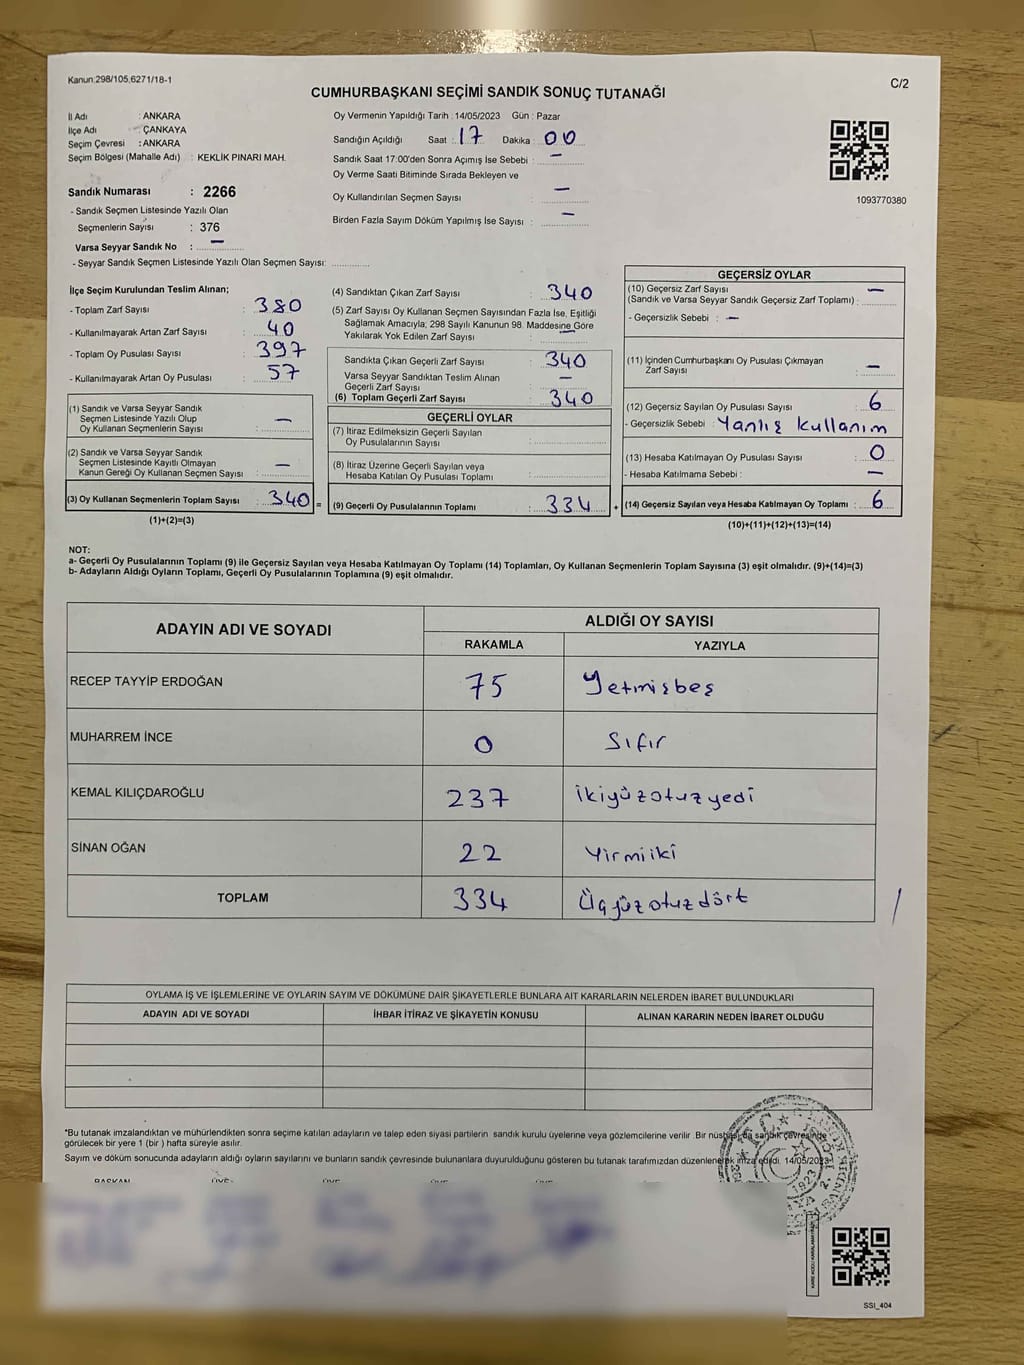 Kanun:298/105,6271/18-1
C/2
CUMHURBAŞKANI SEÇİMİ SANDIK SONUÇ TUTANAĞI
İl Adı : ANKARA
İlçe Adı : ÇANKAYA
Seçim Çevresi : ANKARA
Seçim Bölgesi (Mahalle Adı) : KEKLİK PINARI MAH.
Sandık Numarası : 2266
- Sandık Seçmen Listesinde Yazılı Olan
Seçmenlerin Sayısı : 376
Varsa Seyyar Sandık No : —
- Seyyar Sandık Seçmen Listesinde Yazılı Olan Seçmen Sayısı: ..............
Oy Vermenin Yapıldığı Tarih : 14/05/2023 Gün : Pazar
Sandığın Açıldığı Saat : 17 Dakika : 00
Sandık Saat 17:00'den Sonra Açımış İse Sebebi : —
Oy Verme Saati Bitiminde Sırada Bekleyen ve
Oy Kullandırılan Seçmen Sayısı : —
Birden Fazla Sayım Döküm Yapılmış İse Sayısı : —
1093770380
İlçe Seçim Kurulundan Teslim Alınan;
- Toplam Zarf Sayısı : 380
- Kullanılmayarak Artan Zarf Sayısı : 40
- Toplam Oy Pusulası Sayısı : 397
- Kullanılmayarak Artan Oy Pusulası : 57
(1) Sandık ve Varsa Seyyar Sandık
Seçmen Listesinde Yazılı Olup
Oy Kullanan Seçmenlerin Sayısı : —
(2) Sandık ve Varsa Seyyar Sandık
Seçmen Listesinde Kayıtlı Olmayan
Kanun Gereği Oy Kullanan Seçmen Sayısı : —
(3) Oy Kullanan Seçmenlerin Toplam Sayısı : 340 =
(1)+(2)=(3)
(4) Sandıktan Çıkan Zarf Sayısı : 340
(5) Zarf Sayısı Oy Kullanan Seçmen Sayısından Fazla İse, Eşitliği
Sağlamak Amacıyla; 298 Sayılı Kanunun 98. Maddesine Göre
Yakılarak Yok Edilen Zarf Sayısı : —
Sandıkta Çıkan Geçerli Zarf Sayısı : 340
Varsa Seyyar Sandıktan Teslim Alınan
Geçerli Zarf Sayısı : —
(6) Toplam Geçerli Zarf Sayısı : 340
GEÇERLİ OYLAR
(7) İtiraz Edilmeksizin Geçerli Sayılan
Oy Pusulalarının Sayısı :
(8) İtiraz Üzerine Geçerli Sayılan veya
Hesaba Katılan Oy Pusulası Toplamı :
(9) Geçerli Oy Pusulalarının Toplamı : 334 +
GEÇERSİZ OYLAR
(10) Geçersiz Zarf Sayısı —
(Sandık ve Varsa Seyyar Sandık Geçersiz Zarf Toplamı) :
- Geçersizlik Sebebi : —
(11) İçinden Cumhurbaşkanı Oy Pusulası Çıkmayan
Zarf Sayısı : —
(12) Geçersiz Sayılan Oy Pusulası Sayısı : 6
- Geçersizlik Sebebi : Yanlış kullanım
(13) Hesaba Katılmayan Oy Pusulası Sayısı : 0
- Hesaba Katılmama Sebebi : —
(14) Geçersiz Sayılan veya Hesaba Katılmayan Oy Toplamı : 6
(10)+(11)+(12)+(13)=(14)
NOT:
a- Geçerli Oy Pusulalarının Toplamı (9) ile Geçersiz Sayılan veya Hesaba Katılmayan Oy Toplamı (14) Toplamları, Oy Kullanan Seçmenlerin Toplam Sayısına (3) eşit olmalıdır. (9)+(14)=(3)
b- Adayların Aldığı Oyların Toplamı, Geçerli Oy Pusulalarının Toplamına (9) eşit olmalıdır.
ADAYIN ADI VE SOYADI
ALDIĞI OY SAYISI
RAKAMLA YAZIYLA
RECEP TAYYİP ERDOĞAN 75 Yetmişbeş
MUHARREM İNCE 0 Sıfır
KEMAL KILIÇDAROĞLU 237 İkiyüzotuzyedi
SİNAN OĞAN 22 Yirmiiki
TOPLAM 334 Üçyüzotuzdört
OYLAMA İŞ VE İŞLEMLERİNE VE OYLARIN SAYIM VE DÖKÜMÜNE DAİR ŞİKAYETLERLE BUNLARA AİT KARARLARIN NELERDEN İBARET BULUNDUKLARI
ADAYIN ADI VE SOYADI İHBAR İTİRAZ VE ŞİKAYETİN KONUSU ALINAN KARARIN NEDEN İBARET OLDUĞU
*Bu tutanak imzalandıktan ve mühürlendikten sonra seçime katılan adayların ve talep eden siyasi partilerin sandık kurulu üyelerine veya gözlemcilerine verilir .Bir nüshası da sandık çevresinde
görülecek bir yere 1 (bir ) hafta süreyle asılır.
Sayım ve döküm sonucunda adayların aldığı oyların sayılarını ve bunların sandık çevresinde bulunanlara duyurulduğunu gösteren bu tutanak tarafımızdan düzenlenerek imza edildi. 14/05/2023
BAŞKAN ÜYE ÜYE ÜYE ÜYE
SSI_404